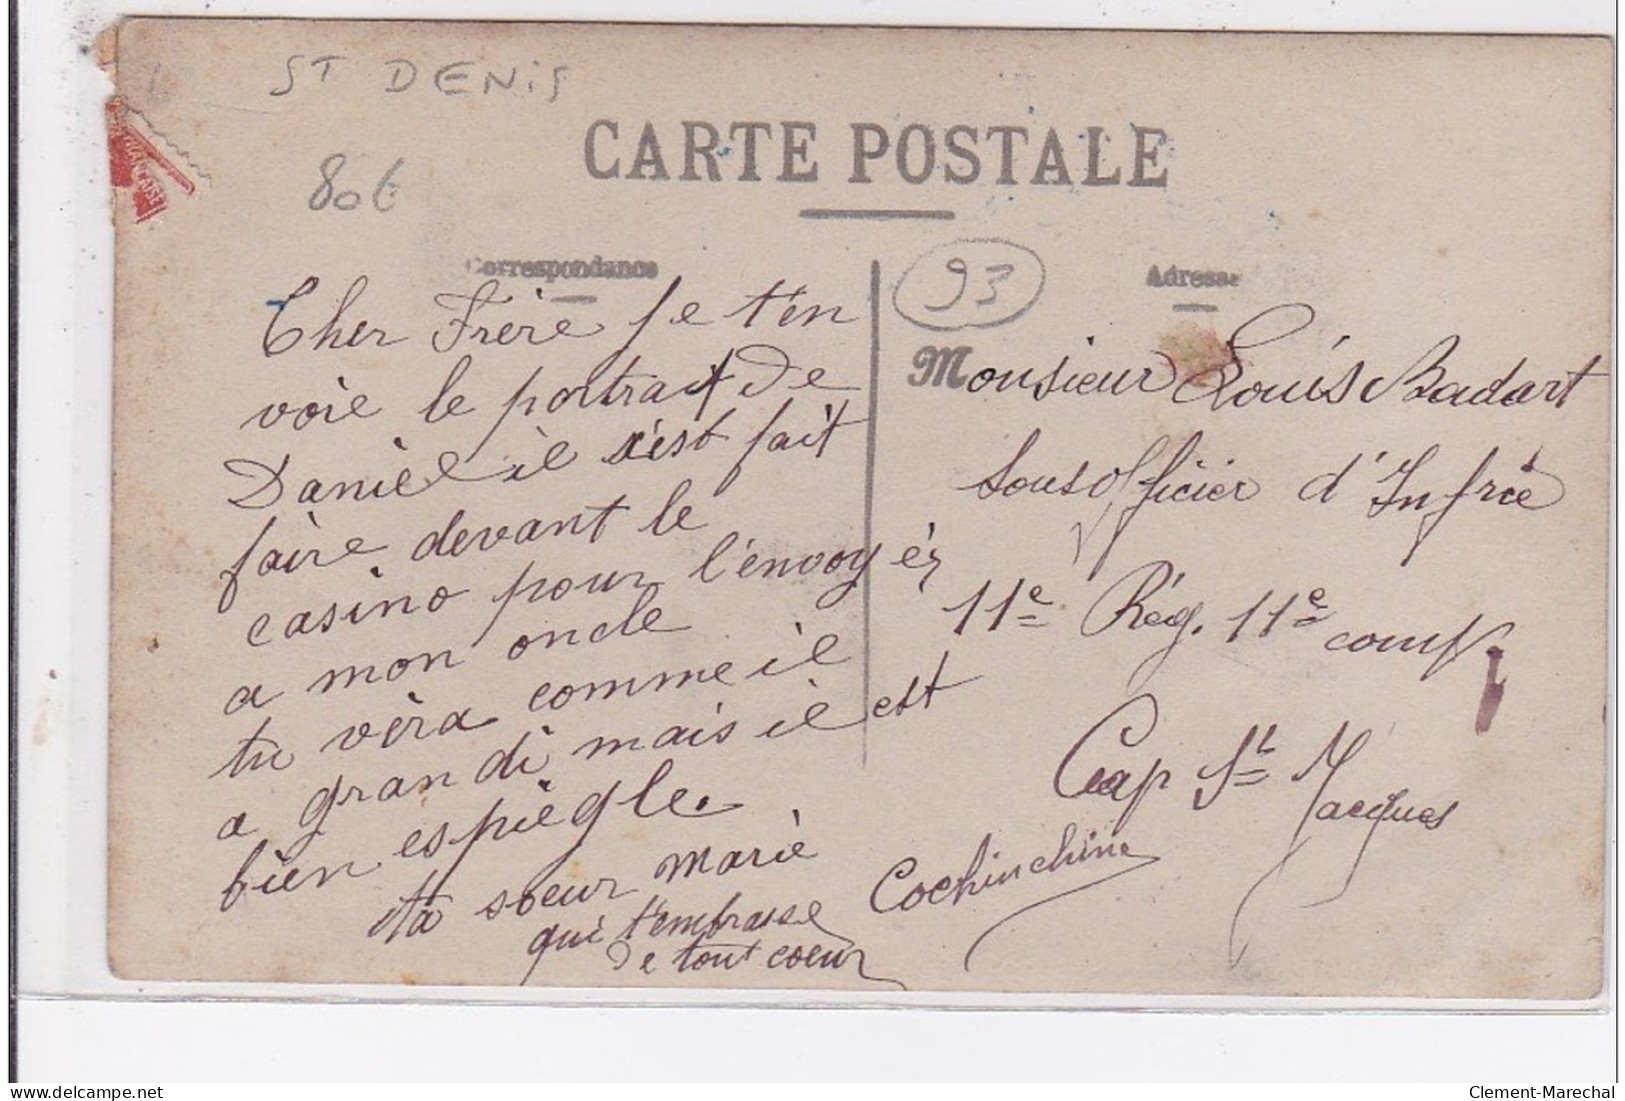 ST DENIS
80€
CARTE POSTALE
FRANÇAISE
Correspondance
93
Adresse
Cher Frère Je t'en
voie le portrait De
Danièl il s'est fait
faire devant le
casino pour l'envoyér
a mon oncle
tu vèra comme il
a grandi mais il est
bien espiègle.
ta soeur Marie
qui t'embrasse
De tout coeur
Monsieur Louis Badart
Sous Officier d'Infrie
11e Rég. 11e comp
Cap St Jacques
Cochinchine
delcampe.net
Clement-Marechal